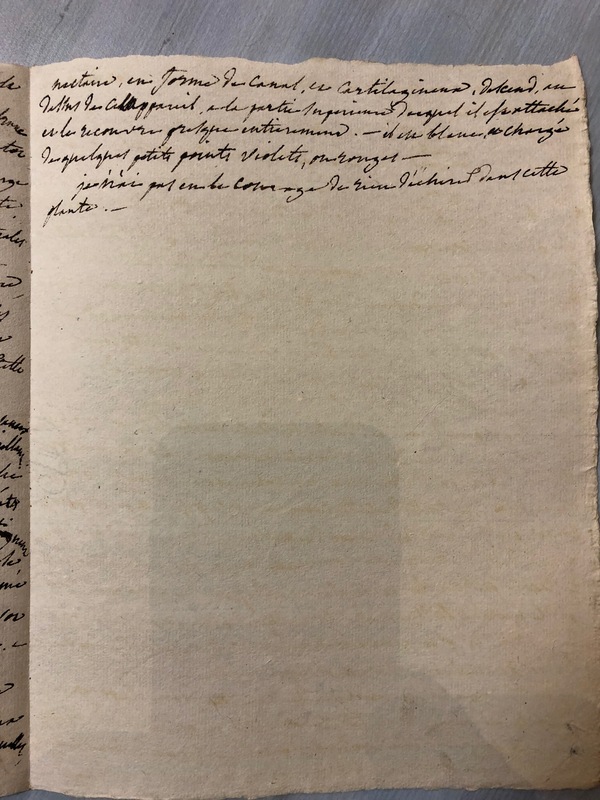 nectaire, en forme de canal, et cartilagineux, descend, au
dessus de cet appareil, a la partie superieure duquel il est attaché
et le recouvre presque entierement. — il est blanc, et chargé
de quelques petits points violets, ou rouges —
je n'ai pas eu le courage de rien déchirer dans cette
plante. —